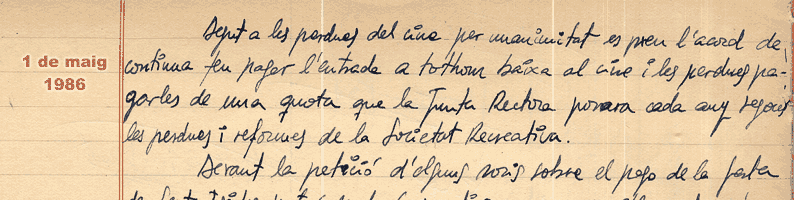 1 de maig
1986
Degut a les perdues del cine per unanimitat es pren l'acord de
continua fen pagar l'entrada a tothom baixa al cine i les perdues pa-
garles de una quota que la Junta Rectora posara cada any segons
les perdues i reformes de la Societat Recreativa.
Devant la petició d'alguns socis sobre el pago de la festa